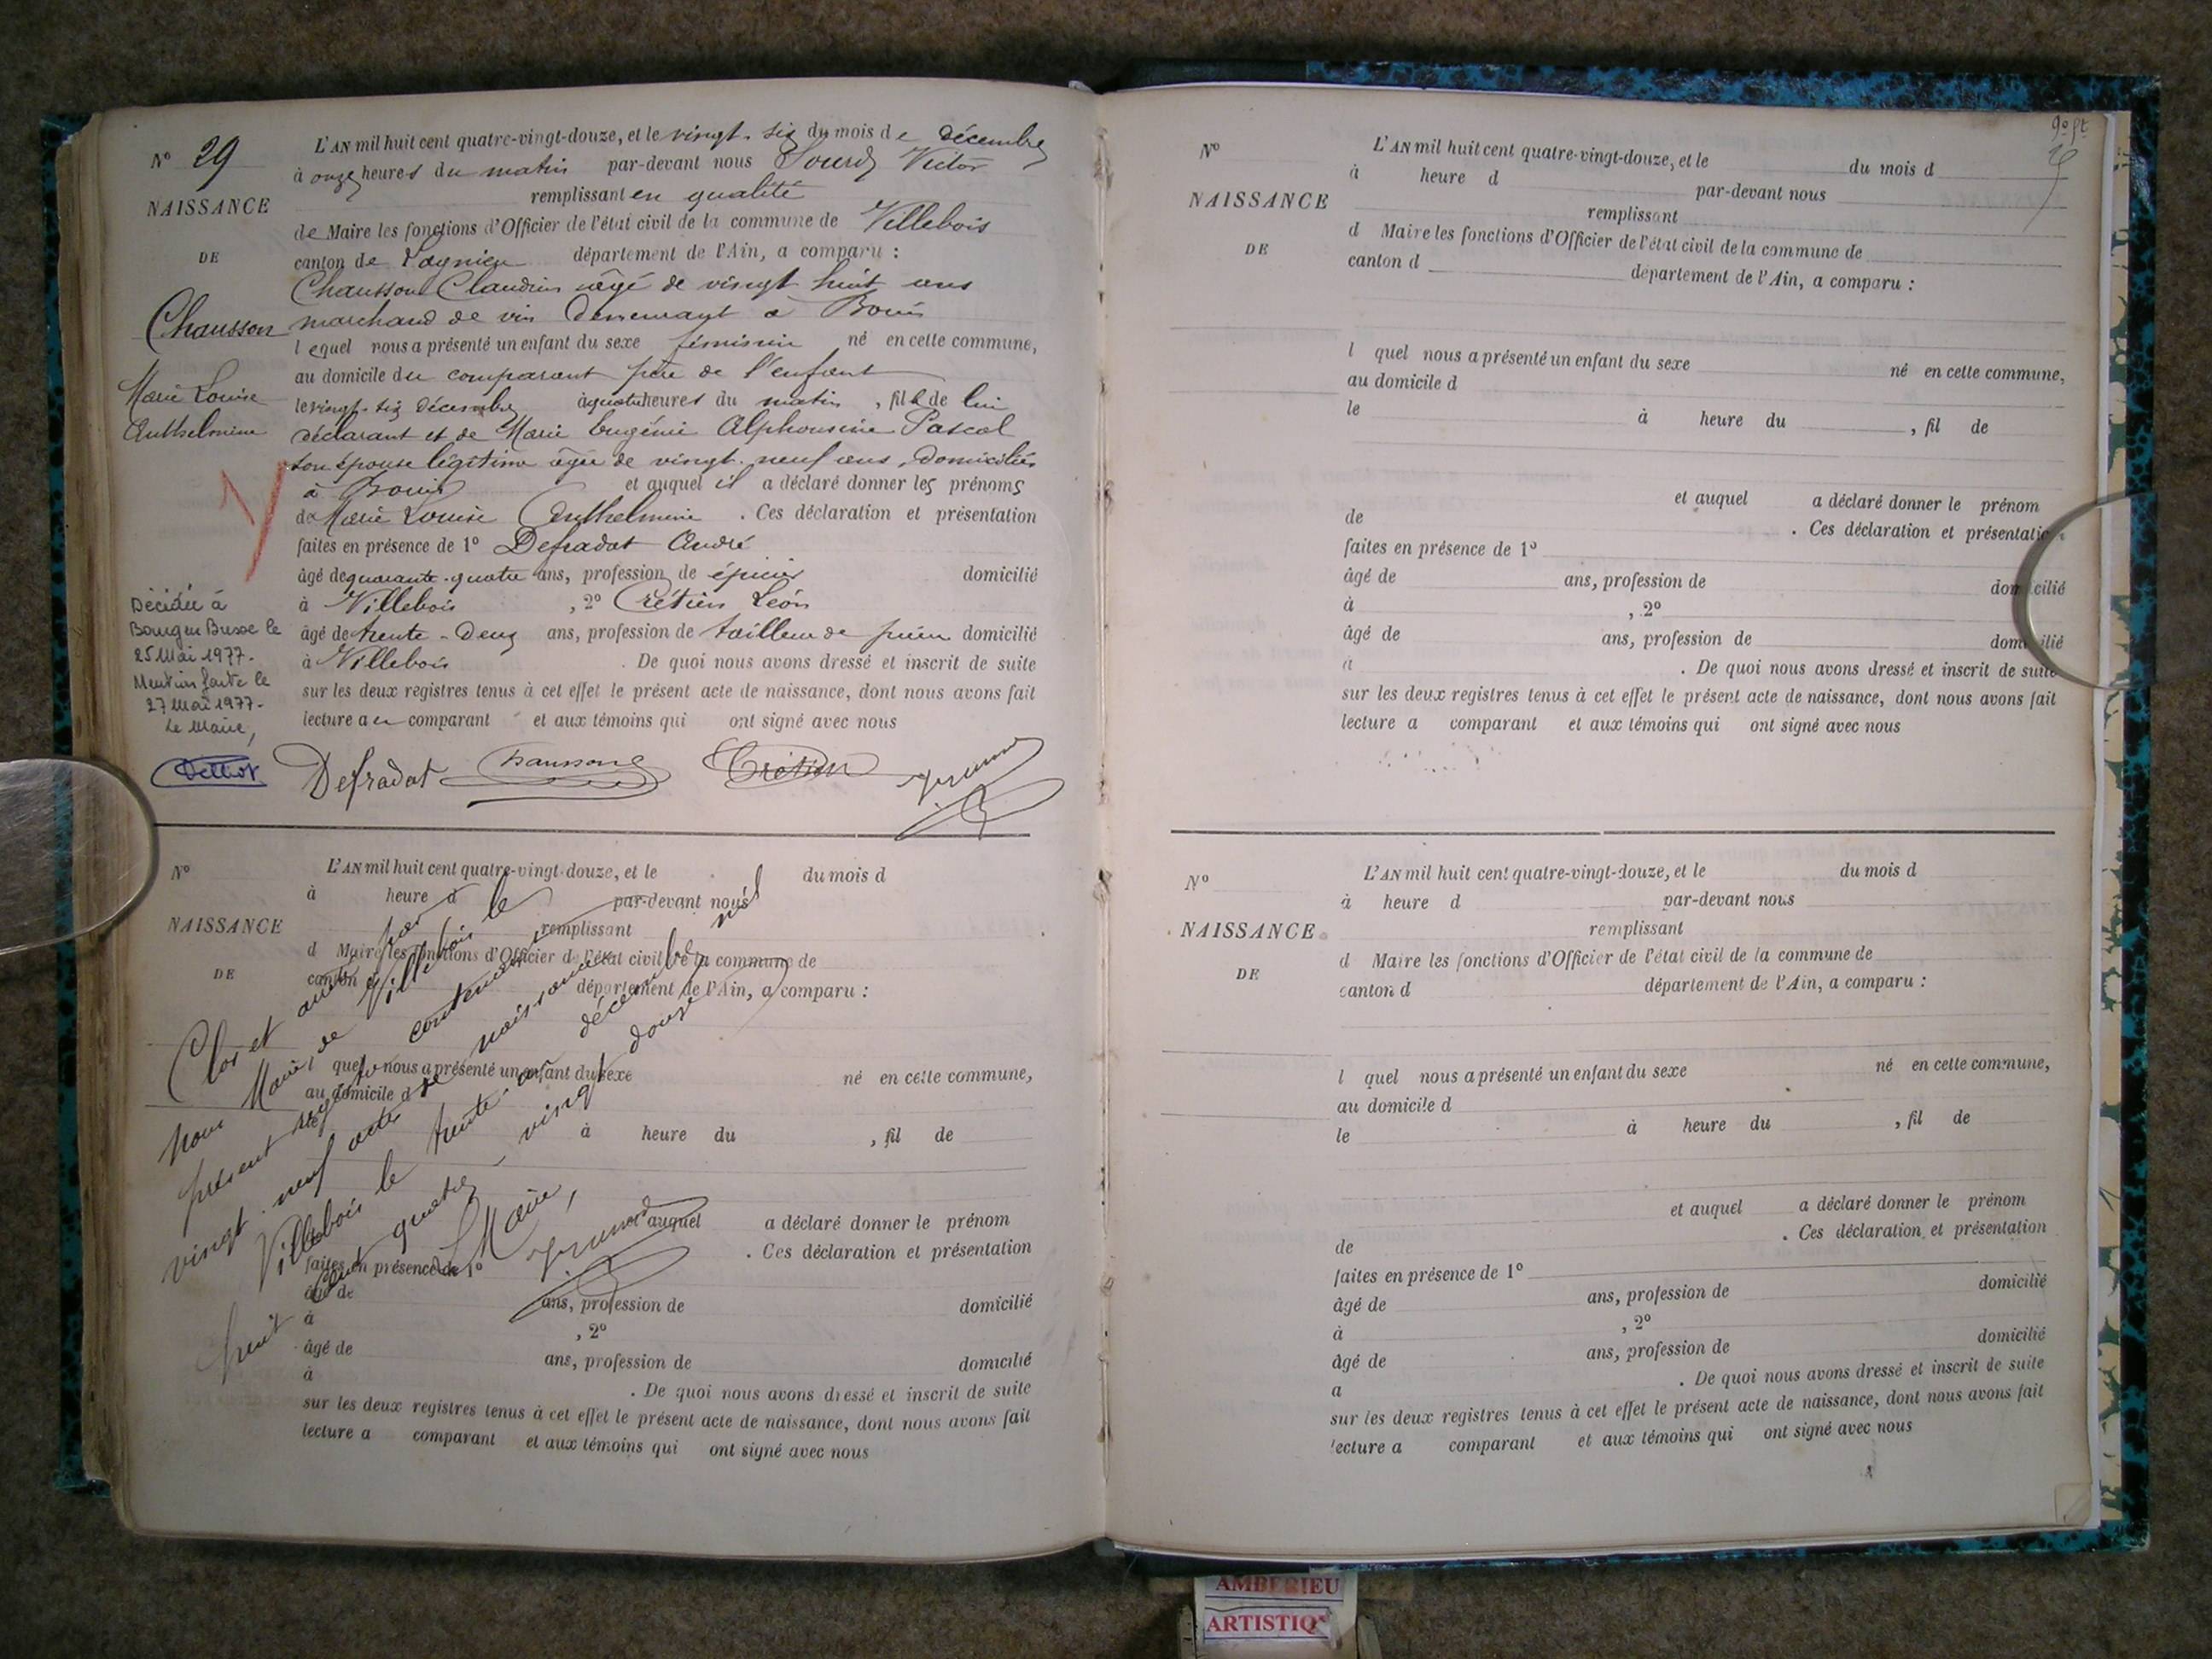 N° 29
NAISSANCE
DE
Chausson
Marie Louise
Anthelmine
Décédée à
Bourg en Bresse le
25 Mai 1977.
Mention faite le
27 Mai 1977.
Le Maire,
L'AN mil huit cent quatre-vingt-douze, et le vingt-six du mois de décembre
à onze heures du matin par-devant nous Sourd Victor
remplissant en qualité
de Maire les fonctions d'Officier de l'état civil de la commune de Villebois
canton de Lagnieu département de l'Ain, a comparu :
Chausson Claudius âgé de vingt huit ans
marchand de vin demeurant à Bouis
lequel nous a présenté un enfant du sexe féminin né en cette commune,
au domicile du comparant père de l'enfant
le vingt-six décembre à quatre heures du matin, fille de lui
déclarant et de Marie Eugénie Alphonsine Pascal
son épouse légitime âgée de vingt-neuf ans, domiciliés
à Bouis et auquel il a déclaré donner les prénoms
de Marie Louise Anthelmine . Ces déclaration et présentation
faites en présence de 1° Defradat André
âgé de quarante-quatre ans, profession de épicier domicilié
à Villebois , 2° Crétien Léon
âgé de trente-deux ans, profession de tailleur de pierre domicilié
à Villebois . De quoi nous avons dressé et inscrit de suite
sur les deux registres tenus à cet effet le présent acte de naissance, dont nous avons fait
lecture au comparant et aux témoins qui ont signé avec nous
Defradat Chausson Crétien
N°
NAISSANCE
DE
L'AN mil huit cent quatre-vingt-douze, et le du mois d
à heure d par-devant nous
remplissant
d Maire les fonctions d'Officier de l'état civil de la commune de
canton d département de l'Ain, a comparu :
l quel nous a présenté un enfant du sexe né en cette commune,
au domicile d
le à heure du , fil de
et auquel a déclaré donner le prénom
. Ces déclaration et présentation
faites en présence de 1°
âgé de ans, profession de domicilié
à , 2°
âgé de ans, profession de domicilié
à . De quoi nous avons dressé et inscrit de suite
sur les deux registres tenus à cet effet le présent acte de naissance, dont nous avons fait
lecture a comparant et aux témoins qui ont signé avec nous
Clos et arrêté par
Nous Maire de Villebois le
présent registre contenant
vingt-neuf actes de naissance
Villebois le trente-un décembre mil
huit cent quatre-vingt douze
Le Maire,
N°
NAISSANCE
DE
L'AN mil huit cent quatre-vingt-douze, et le du mois d
à heure d par-devant nous
remplissant
d Maire les fonctions d'Officier de l'état civil de la commune de
canton d département de l'Ain, a comparu :
l quel nous a présenté un enfant du sexe né en cette commune,
au domicile d
le à heure du , fil de
et auquel a déclaré donner le prénom
de . Ces déclaration et présentation
faites en présence de 1°
âgé de ans, profession de domicilié
à , 2°
âgé de ans, profession de domicilié
à . De quoi nous avons dressé et inscrit de suite
sur les deux registres tenus à cet effet le présent acte de naissance, dont nous avons fait
lecture a comparant et aux témoins qui ont signé avec nous
N°
NAISSANCE
DE
L'AN mil huit cent quatre-vingt-douze, et le du mois d
à heure d par-devant nous
remplissant
d Maire les fonctions d'Officier de l'état civil de la commune de
canton d département de l'Ain, a comparu :
l quel nous a présenté un enfant du sexe né en cette commune,
au domicile d
le à heure du , fil de
et auquel a déclaré donner le prénom
de . Ces déclaration et présentation
faites en présence de 1°
âgé de ans, profession de domicilié
à , 2°
âgé de ans, profession de domicilié
a . De quoi nous avons dressé et inscrit de suite
sur les deux registres tenus à cet effet le présent acte de naissance, dont nous avons fait
lecture a comparant et aux témoins qui ont signé avec nous
AMBERIEU
ARTISTIQ